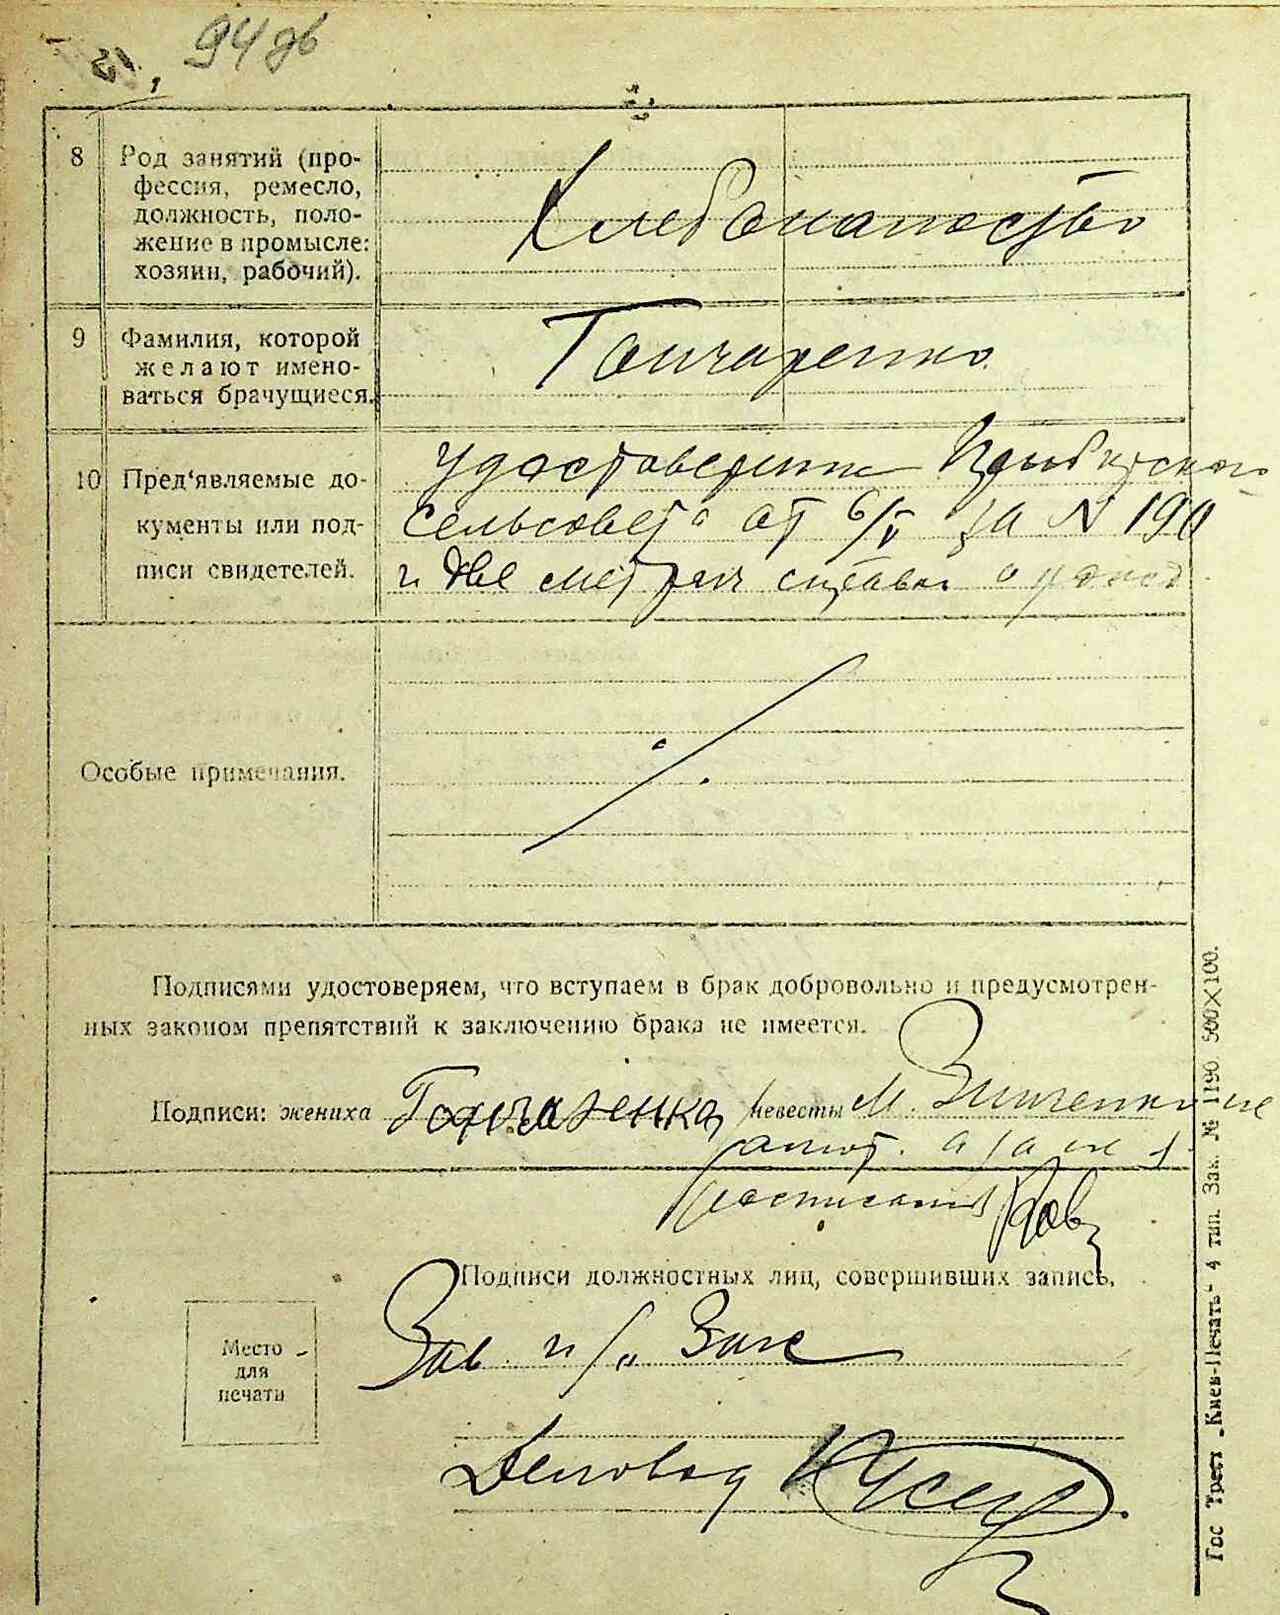 94 дв
8
Род занятий (про-
фессия, ремесло,
должность, поло-
жение в промысле:
хозяин, рабочий).
Хлебопашество
9
Фамилия, которой
желают имено-
ваться брачущиеся.
Гончаренко
10
Пред'являемые до-
кументы или под-
писи свидетелей.
удостоверение
сельсовета от 6/V за N 190
и две метрич справки о рожд
Особые примечания.
Подписями удостоверяем, что вступаем в брак добровольно и предусмотрен-
ных законом препятствий к заключению брака не имеется.
Подписи: жениха Гончаренко невесты М. Зинченко
Подписи должностных лиц, совершивших запись.
Зав п/о Загс
Место
для
печати
Деловод
Гос Трест „Киев-Печать“ 4 тип. Зак. № 1190. 500X100.